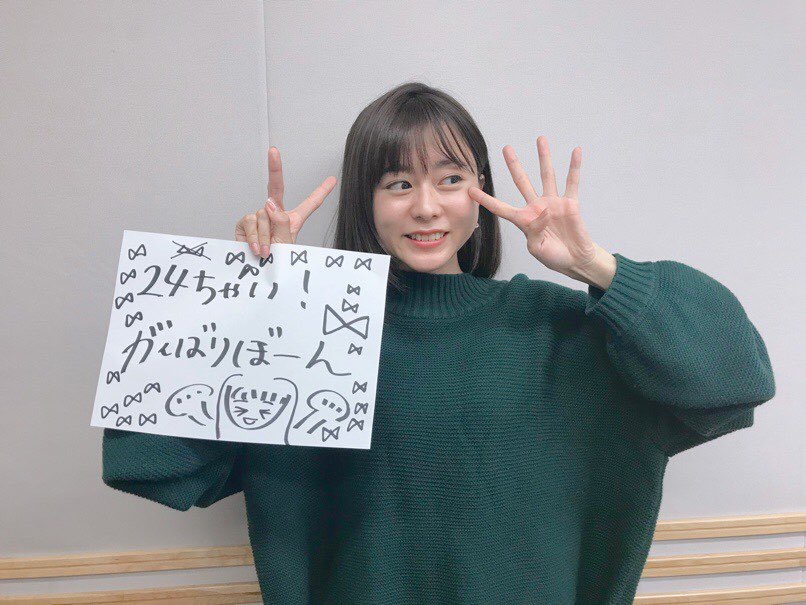 24ちゃい!
がんばりぼーん